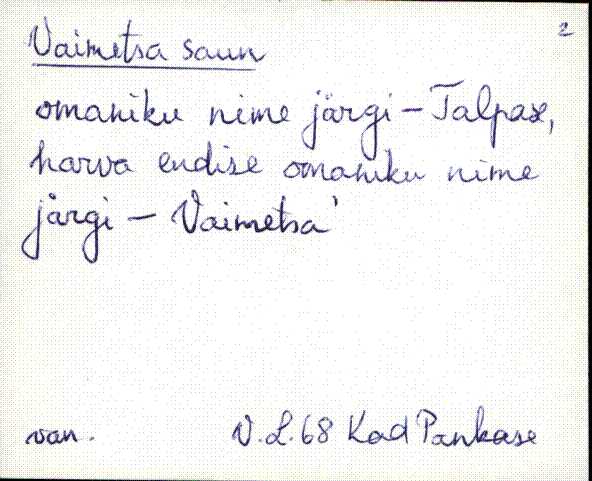 2
Vaimetsa saun
omaniku nime järgi – Talpas,
harva endise omaniku nime
järgi – Vaimetsa'
van. V.L. 68 Kad Pankase